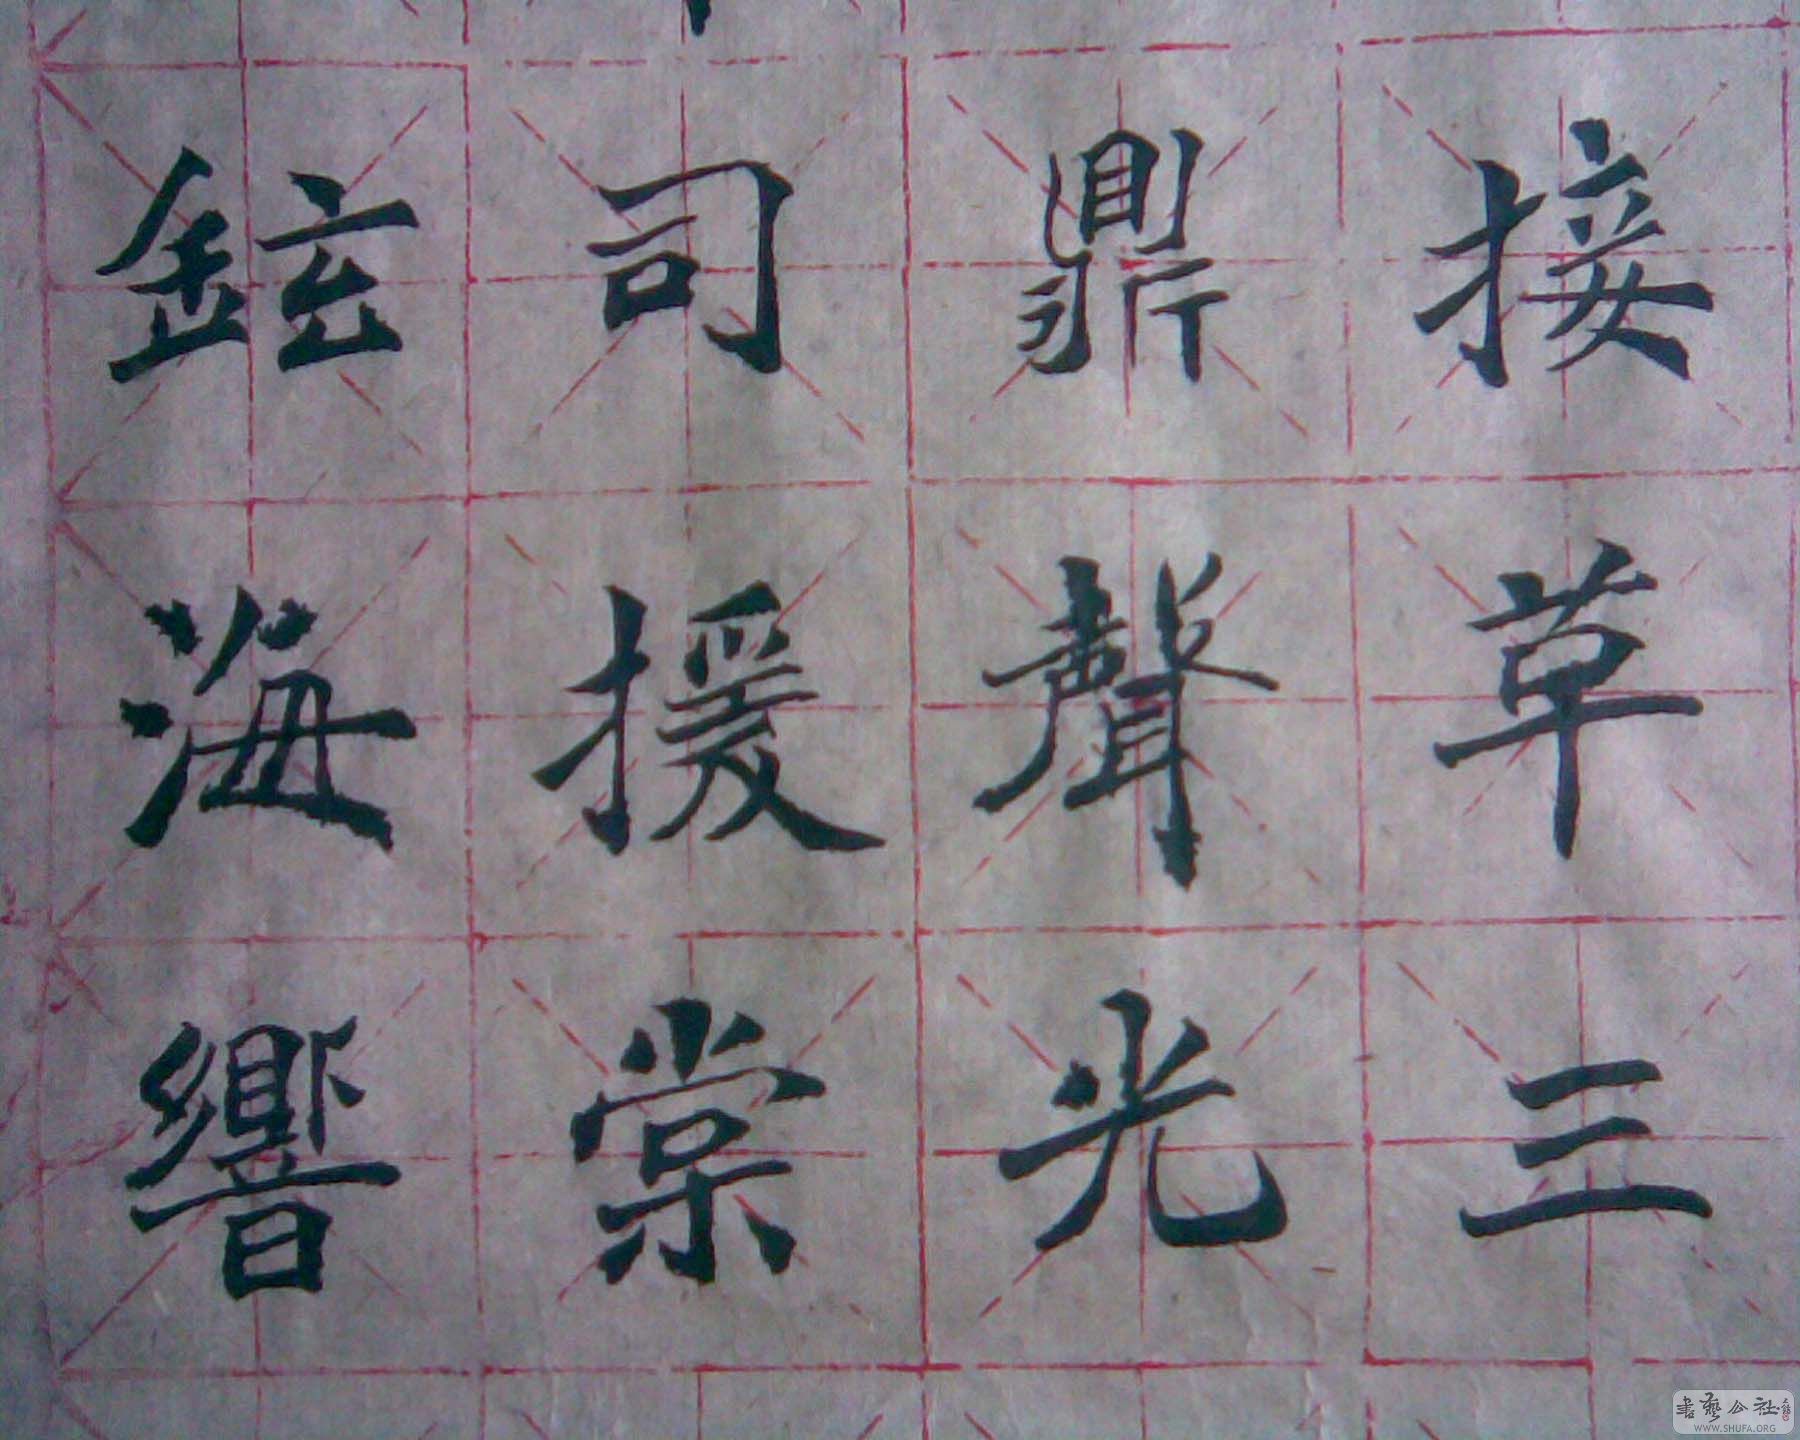 接草三
鼎聲光
司援棠
鉉海響
書藝公社
WWW.SHUFA.ORG